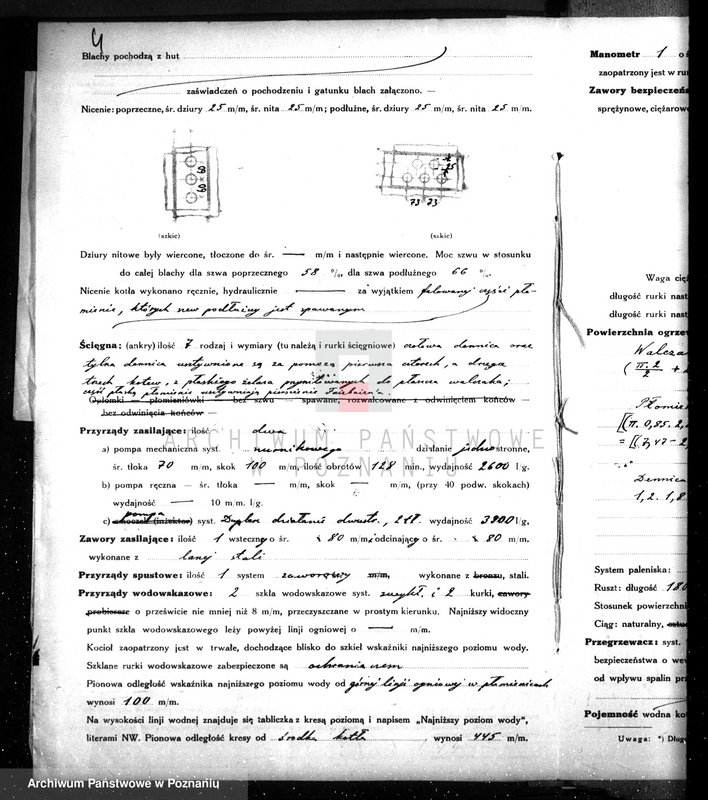 4
Blachy pochodzą z hut
zaświadczeń o pochodzeniu i gatunku blach załączono. —
Nicenie: poprzeczne, śr. dziury 25 m/m, śr. nita 25 m/m; podłużne, śr. dziury 25 m/m, śr. nita 25 m/m.
50
50
25
73 73
(szkic) (szkic)
Dziury nitowe były wiercone, tłoczone do śr. — m/m i następnie wiercone. Moc szwu w stosunku
do całej blachy dla szwa poprzecznego 58 %, dla szwa podłużnego 66 %.
Nicenie kotła wykonano ręcznie, hydraulicznie — za wyjątkiem falowanej części pło-
mienic, których szew podłużny jest spawanym
Ścięgna: (ankry) ilość 7 rodzaj i wymiary (tu należą i rurki ścięgniowe) czołowa dennica oraz
tylna dennica usztywnione są za pomocą pierwsza czterech, a druga
trzech kotew, z płaskiego żelaza przynitowanych do płaszcza walczaka;
część płaską płomienic usztywniają pierścienie Fairbairn'a.
Opłomki — płomieniówki — bez szwu — spawane, rozwalcowane z odwinięciem końców —
bez odwinięcia końców —
Przyrządy zasilające: ilość dwa
a) pompa mechaniczna syst. nurnikowego działanie jednostronne,
śr. tłoka 70 m/m, skok 100 m/m, ilość obrotów 128 min., wydajność 2600 l/g.
b) pompa ręczna — śr. tłoka — m/m, skok — m/m, (przy 40 podw. skokach)
wydajność — 10 m/m. l/g.
pompa
c) smoczek (inżektor) syst. Duplex działanie dwustr., 218. wydajność 3900 l/g.
Zawory zasilające: ilość 1 wsteczny o śr. 80 m/m, i odcinający o śr. 80 m/m.
wykonane z lanej stali
Przyrządy spustowe: ilość 1 system zaworowy m/m, wykonane z bronzu, stali.
Przyrządy wodowskazowe: 2 szkła wodowskazowe syst. zwykł. i 2 kurki, zawory
probiercze o prześwicie nie mniej niż 8 m/m, przeczyszczane w prostym kierunku. Najniższy widoczny
punkt szkła wodowskazowego leży powyżej linji ogniowej o — m/m.
Kocioł zaopatrzony jest w trwałe, dochodzące blisko do szkieł wskaźniki najniższego poziomu wody.
Szklane rurki wodowskazowe zabezpieczone są ochraniaczem
Pionowa odległość wskaźnika najniższego poziomu wody od górnej linji ogniowej w płomienicach
wynosi 100 m/m.
Na wysokości linji wodnej znajduje się tabliczka z kresą poziomą i napisem „Najniższy poziom wody",
literami NW. Pionowa odległość kresy od środka kotła wynosi 445 m/m.
Manometr 1 o
zaopatrzony jest w ru
Zawory bezpieczeń
sprężynowe, ciężarow
Waga cię
długość rurki nast
długość rurki nast
Powierzchnia ogrzew
Walcza
Płomie
[(π. 0,85. 2,
= [(7,47 - 2
Dennica
1,2. 1,8
System paleniska:
Ruszt: długość 180
Stosunek powierzchni
Ciąg: naturalny,
Przegrzewacz: syst.
bezpieczeństwa o we
od wpływu spalin pr
Pojemność wodna ko
Uwaga: *) Dług
ARCHIWUM PAŃSTWOWE
W POZNANIU
Archiwum Państwowe w Poznaniu